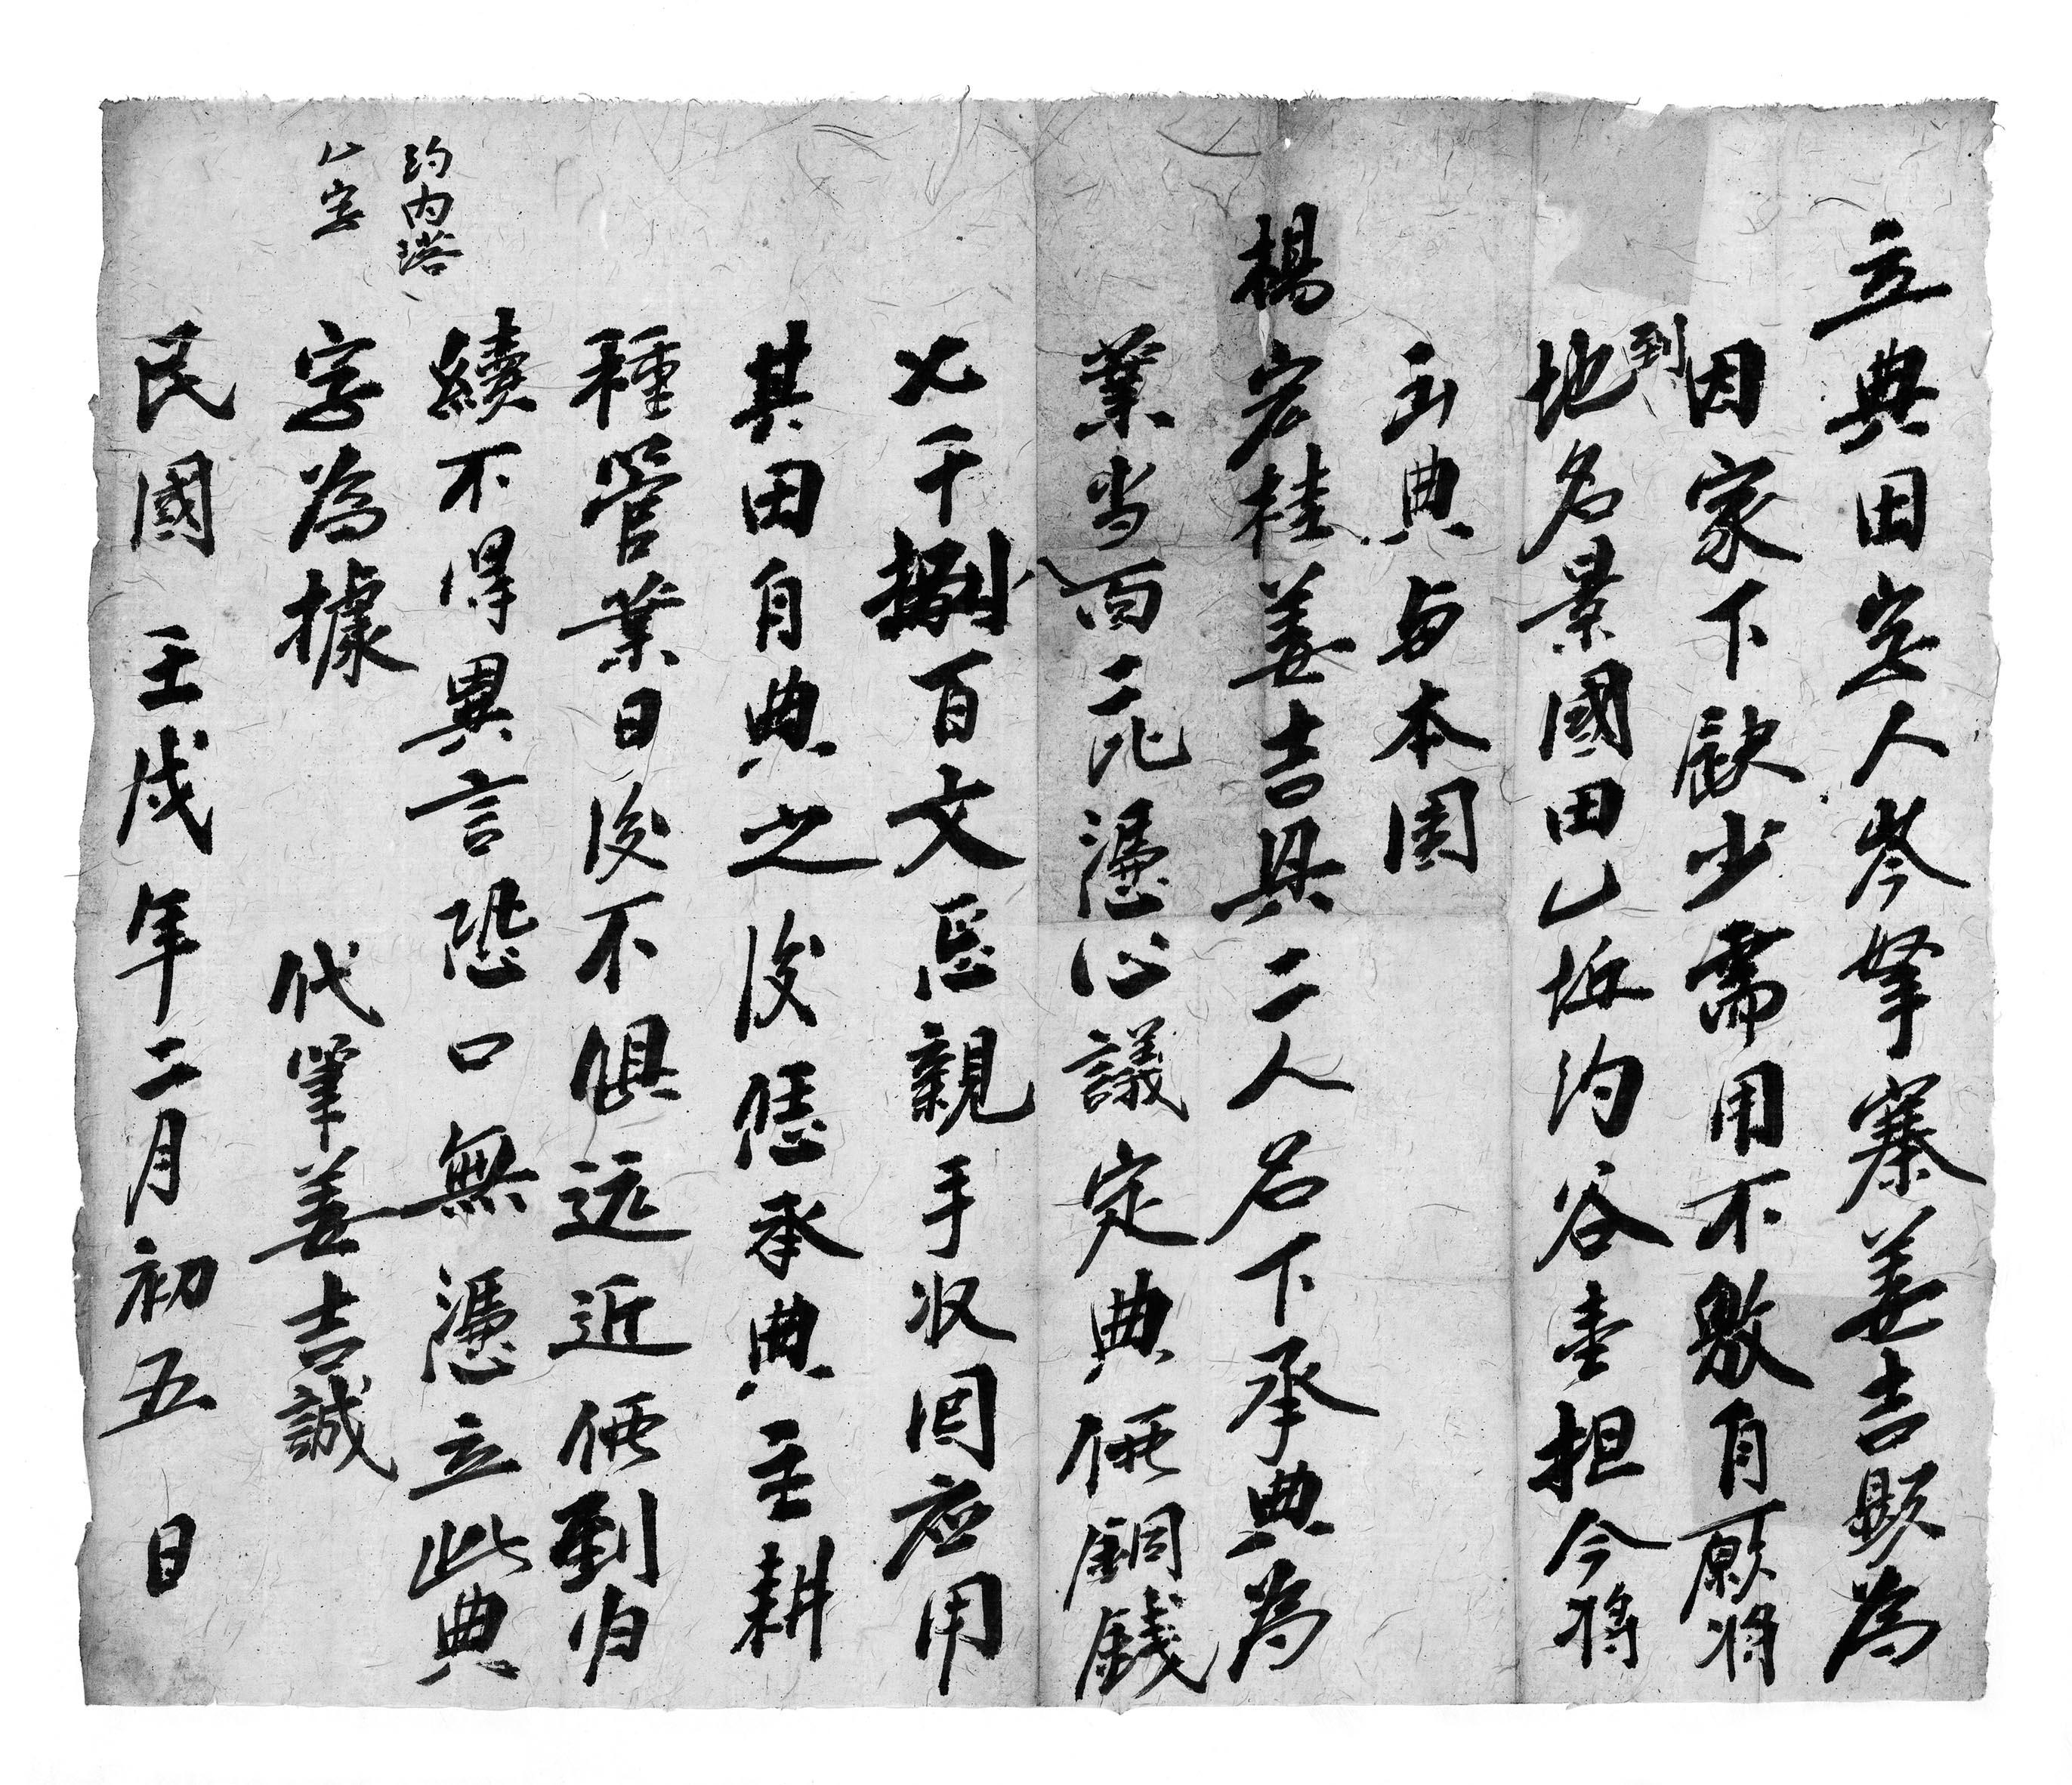 立典田字人岑拏寨姜吉顕為
因家下缺少需用不敷自愿将到
地名景國田乚坵约谷壹担今将
出典与本團
楊宏桂姜吉興二人名下承典為
業当面二比憑心議定典價銅錢
七千捌百文恁親手收囘应用
其田自典之後恁承典主耕
種管業日後不俱远近價到归
續不得異言恐口無憑立此典
字為據 代筆姜吉誠
约内塔
乚字
民國壬戌年二月初五日